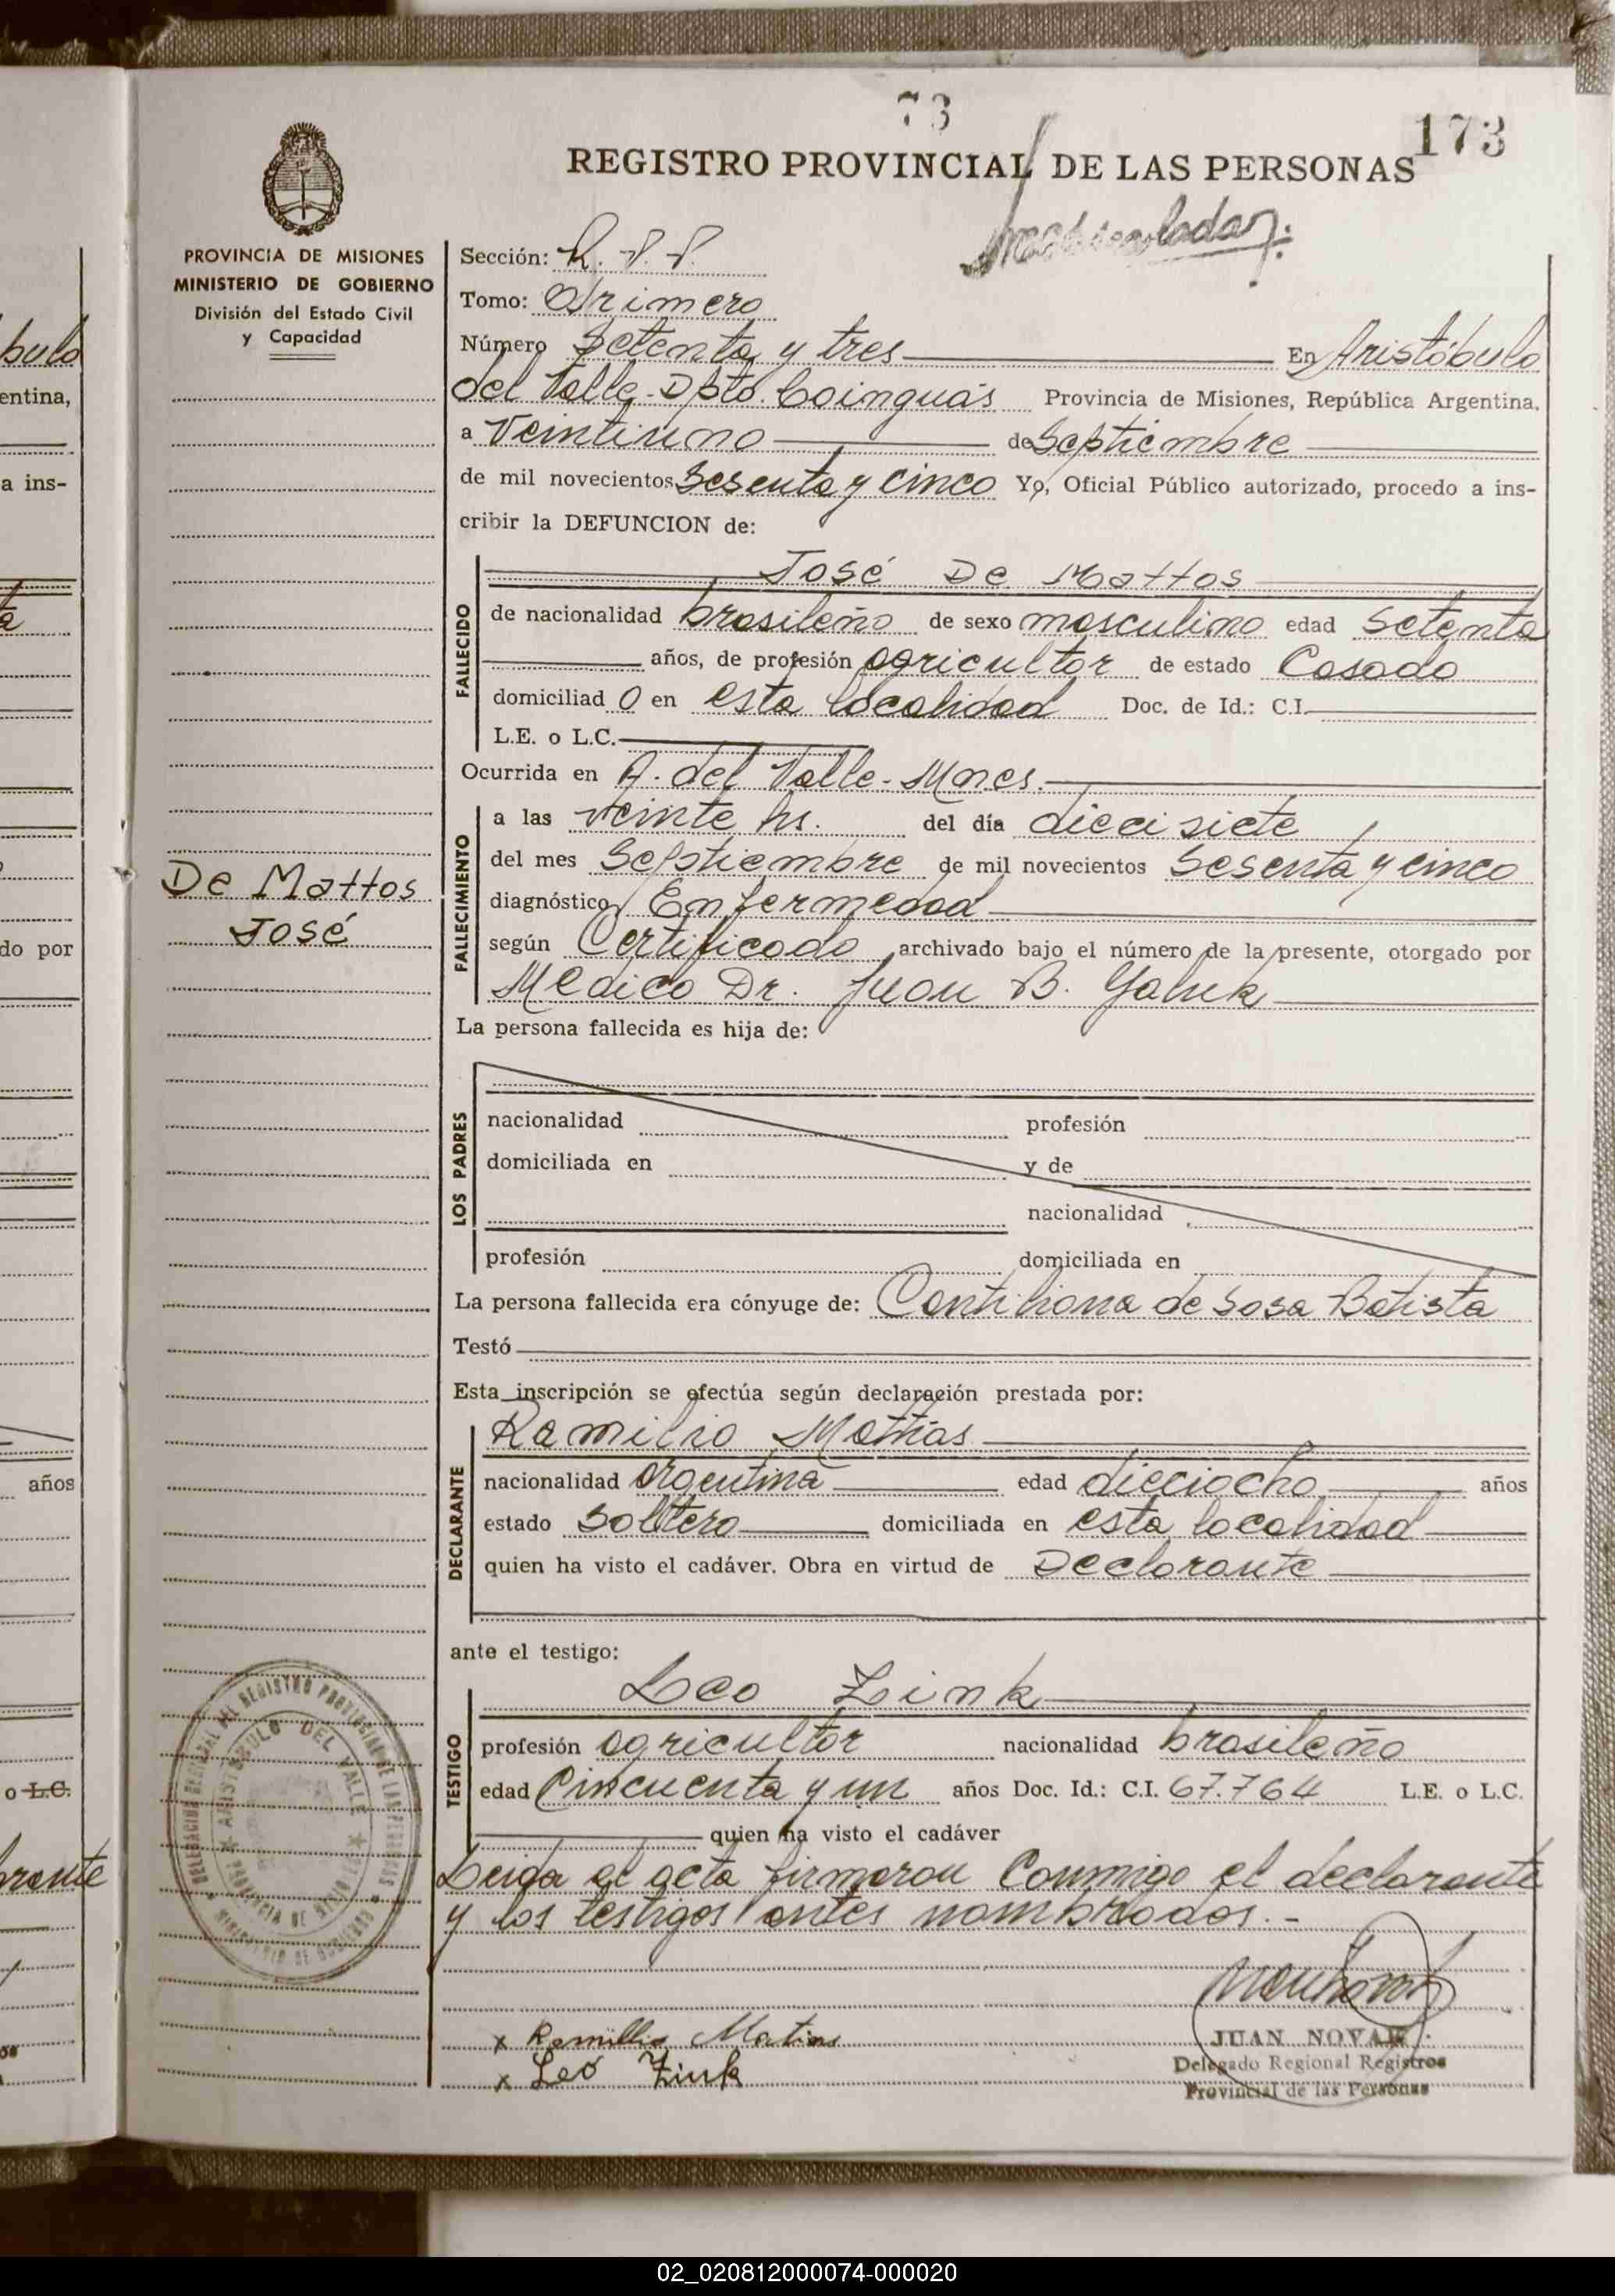 73
173
REGISTRO PROVINCIAL DE LAS PERSONAS
PROVINCIA DE MISIONES
MINISTERIO DE GOBIERNO
División del Estado Civil
y Capacidad
Sección: R.P.P.
Tomo: Primero
Número Setenta y tres En Aristóbulo
del Valle - Dpto. Cainguás Provincia de Misiones, República Argentina,
a Veintiuno de Septiembre
de mil novecientos Sesenta y Cinco Yo, Oficial Público autorizado, procedo a ins-
cribir la DEFUNCION de:
FALLECIDO
José De Mattos
de nacionalidad brasileño de sexo masculino edad Setenta
años, de profesión agricultor de estado Casado
domiciliad o en esta localidad Doc. de Id.: C.I.
L.E. o L.C.
Ocurrida en A. del Valle - Mnes.
FALLECIMIENTO
a las veinte hs. del día diecisiete
del mes Septiembre de mil novecientos Sesenta y cinco
diagnóstico Enfermedad
según Certificado archivado bajo el número de la presente, otorgado por
Medico Dr. Juan B.
De Mattos
José
La persona fallecida es hija de:
LOS PADRES
nacionalidad profesión
domiciliada en y de
nacionalidad
profesión domiciliada en
La persona fallecida era cónyuge de: de Sosa Batista
Testó
Esta inscripción se efectúa según declaración prestada por:
DECLARANTE
Ramilio Mattias
nacionalidad argentina edad dieciocho años
estado Soltero domiciliada en esta localidad
quien ha visto el cadáver. Obra en virtud de Declarante
ante el testigo:
TESTIGO
Leo Zink
profesión agricultor nacionalidad brasileño
edad Cincuenta y un años Doc. Id.: C.I. 67.764 L.E. o L.C.
quien ha visto el cadáver
Leida el acta firmaron Conmigo el declarante
y los testigos antes nombrados.-
x Ramillio Matias
x Leo Zink
JUAN NOVAK
Delegado Regional Registros
Provincial de las Personas
DELEGACION REGIONAL DEL REGISTRO PROVINCIAL DE LAS PERSONAS
ARISTOBULO DEL VALLE
PROVINCIA DE MISIONES
MINISTERIO DE GOBIERNO
bulo
entina,
a ins-
do por
años
o L.C.
02_020812000074-000020